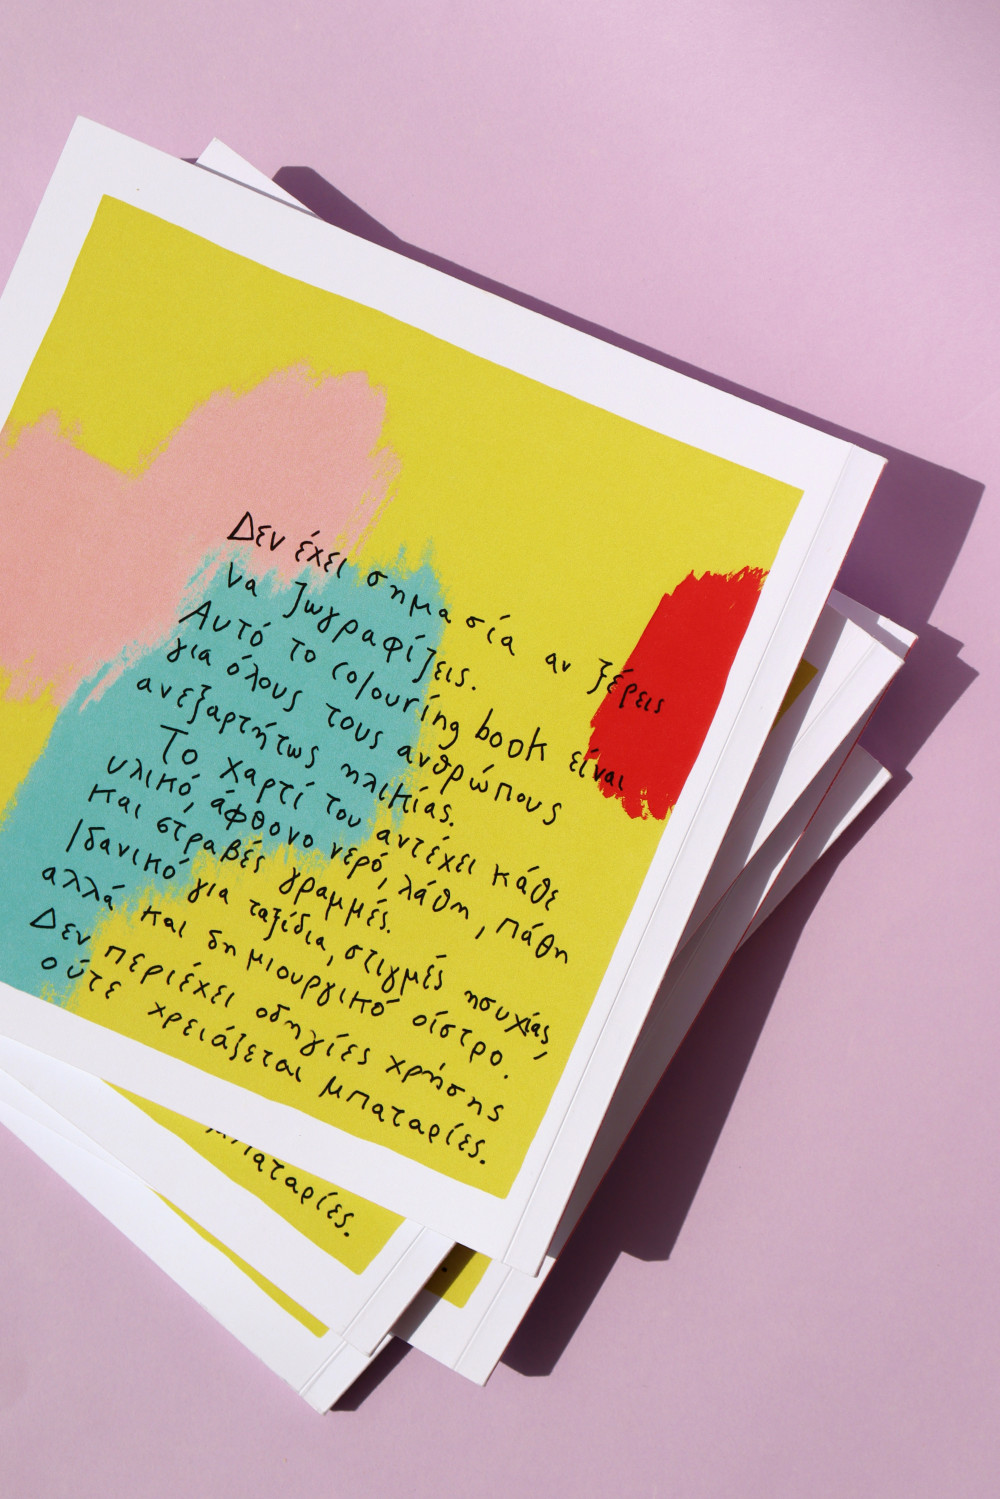 Δεν έχει σημασία αν ξέρεις
να ζωγραφίζεις.
Αυτό το colouring book είναι
για όλους τους ανθρώπους
ανεξαρτήτως ηλικίας.
Το χαρτί του αντέχει κάθε
υλικό, άφθονο νερό, λάθη, πάθη
και στραβές γραμμές.
Ιδανικό για ταξίδια, στιγμές ησυχίας,
αλλά και δημιουργικό οίστρο.
Δεν περιέχει οδηγίες χρήσης
ούτε χρειάζεται μπαταρίες.
μπαταρίες.